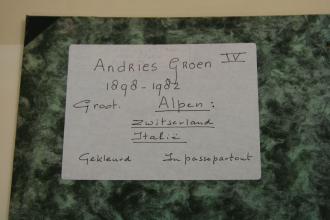 Andries Groen IV
1898-1982
Groot. Alpen:
Zwitserland
Italië
Gekleurd In passepartout